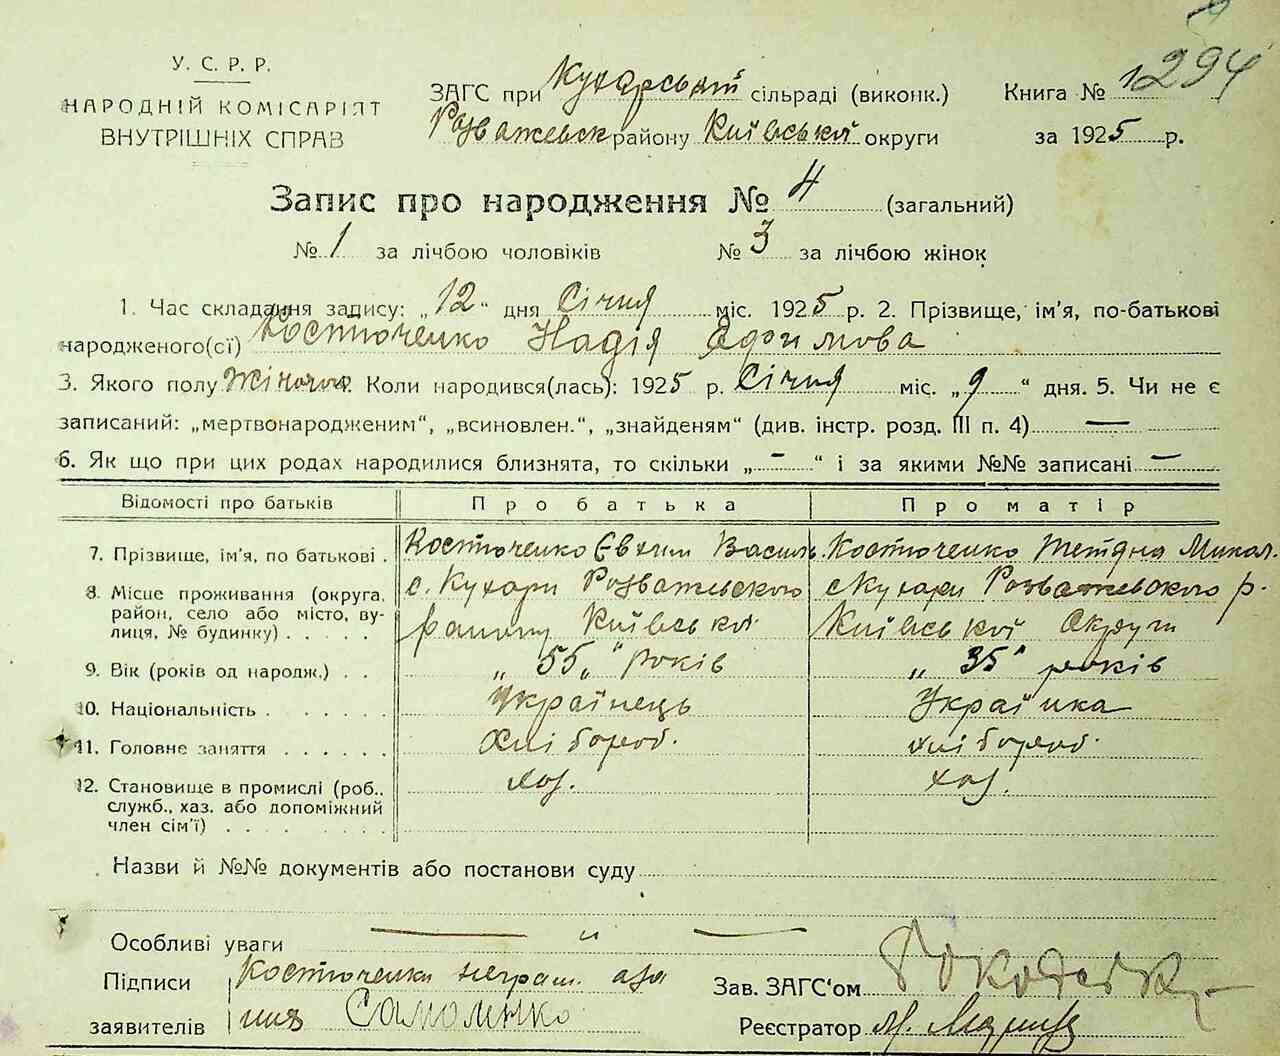 У. С. Р. Р.
НАРОДНІЙ КОМІСАРІЯТ
ВНУТРІШНІХ СПРАВ
ЗАГС при Кухарській сільраді (виконк.)
Розважевськ району Київської округи
Книга №
294
за 1925 р.
Запис про народження № 4 (загальний)
№ 1 за лічбою чоловіків № 3 за лічбою жінок
1. Час складання запису: „12“ дня Січня міс. 1925 р. 2. Прізвище, ім'я, по-батькові
народженого(сі) Костюченко Надія Єфимова
3. Якого полу Жіночої 4. Коли народився(лась): 1925 р. Січня міс. „9“ дня. 5. Чи не є
записаний: „мертвонародженим“, „всиновлен.“, „знайденям“ (див. інстр. розд. III п. 4) —
6. Як що при цих родах народилися близнята, то скільки „-“ і за якими №№ записані —
Відомості про батьків Про батька Про матір
7. Прізвище, ім'я, по батькові . Костюченко Євхим Василь. Костюченко Тетяна Микол.
8. Місце проживання (округа, с. Кухари Розважевского с Кухари Розважевского р.
район, село або місто, ву-
лиця, № будинку) . . . . . району Київської Київської Округи
9. Вік (років од народж.) . . „55„“ років „35“ років
10. Національність . . . . . . Українець Українка
11. Головне заняття . . . . . . Хлібороб. хлібороб.
12. Становище в промислі (роб., хаз. хаз.
служб., хаз. або допоміжний
член сім'ї) . . . . . . . .
Назви й №№ документів або постанови суду
Особливі уваги — „ —
Підписи Костюченко неграм. а за
заявителів Самоленко
Зав. ЗАГС'ом
Реєстратор М.